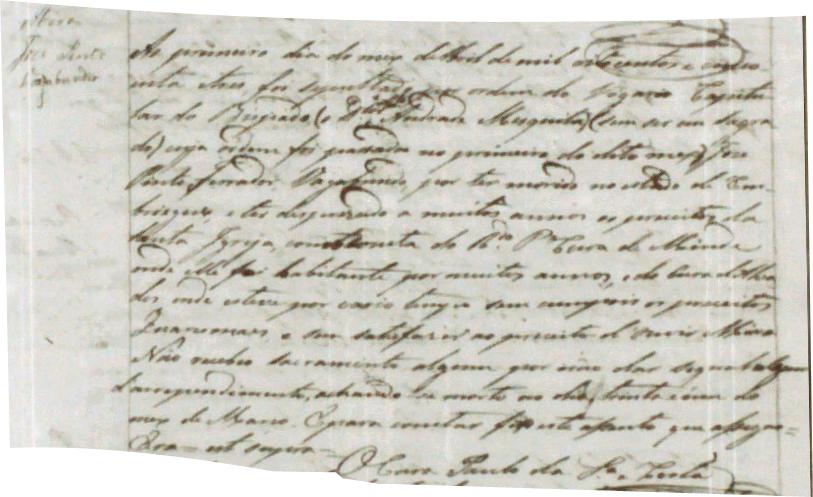 José Pinto
Vagabundo
Ao primeiro dia do mez de Abril de mil oitocentos e cincο-
enta e tres foi sepultado por ordem do Vigario Capitu
lar do Bispado (o Dr. Andrade Mesquita) (sem ser em sagra
do) cuja ordem foi passada no primeiro do dito mez, Joze
Pinto, Ferrador, Vagabundo, por ter morrido no estado de Em-
briaguez, e ter desprezado a muitos annos os preceitos da
Santa Igreja, como consta do Rdo. Pe. Cura de Minde
onde elle foi habitante por muitos annos, e do Cura
onde esteve por varios tempos sem cumprir os preceitos
Quaresmaes, e sem satisfazer ao preceito de ouvir Missa
Não recebeo sacramento algum por não dar signal algum
d'arrependimento, achando se morto no dia trinta e um do
mez de Março. E para constar fiz este assento que assignei
Era = ut supra =
O Cura Paulo da Sa. Costa